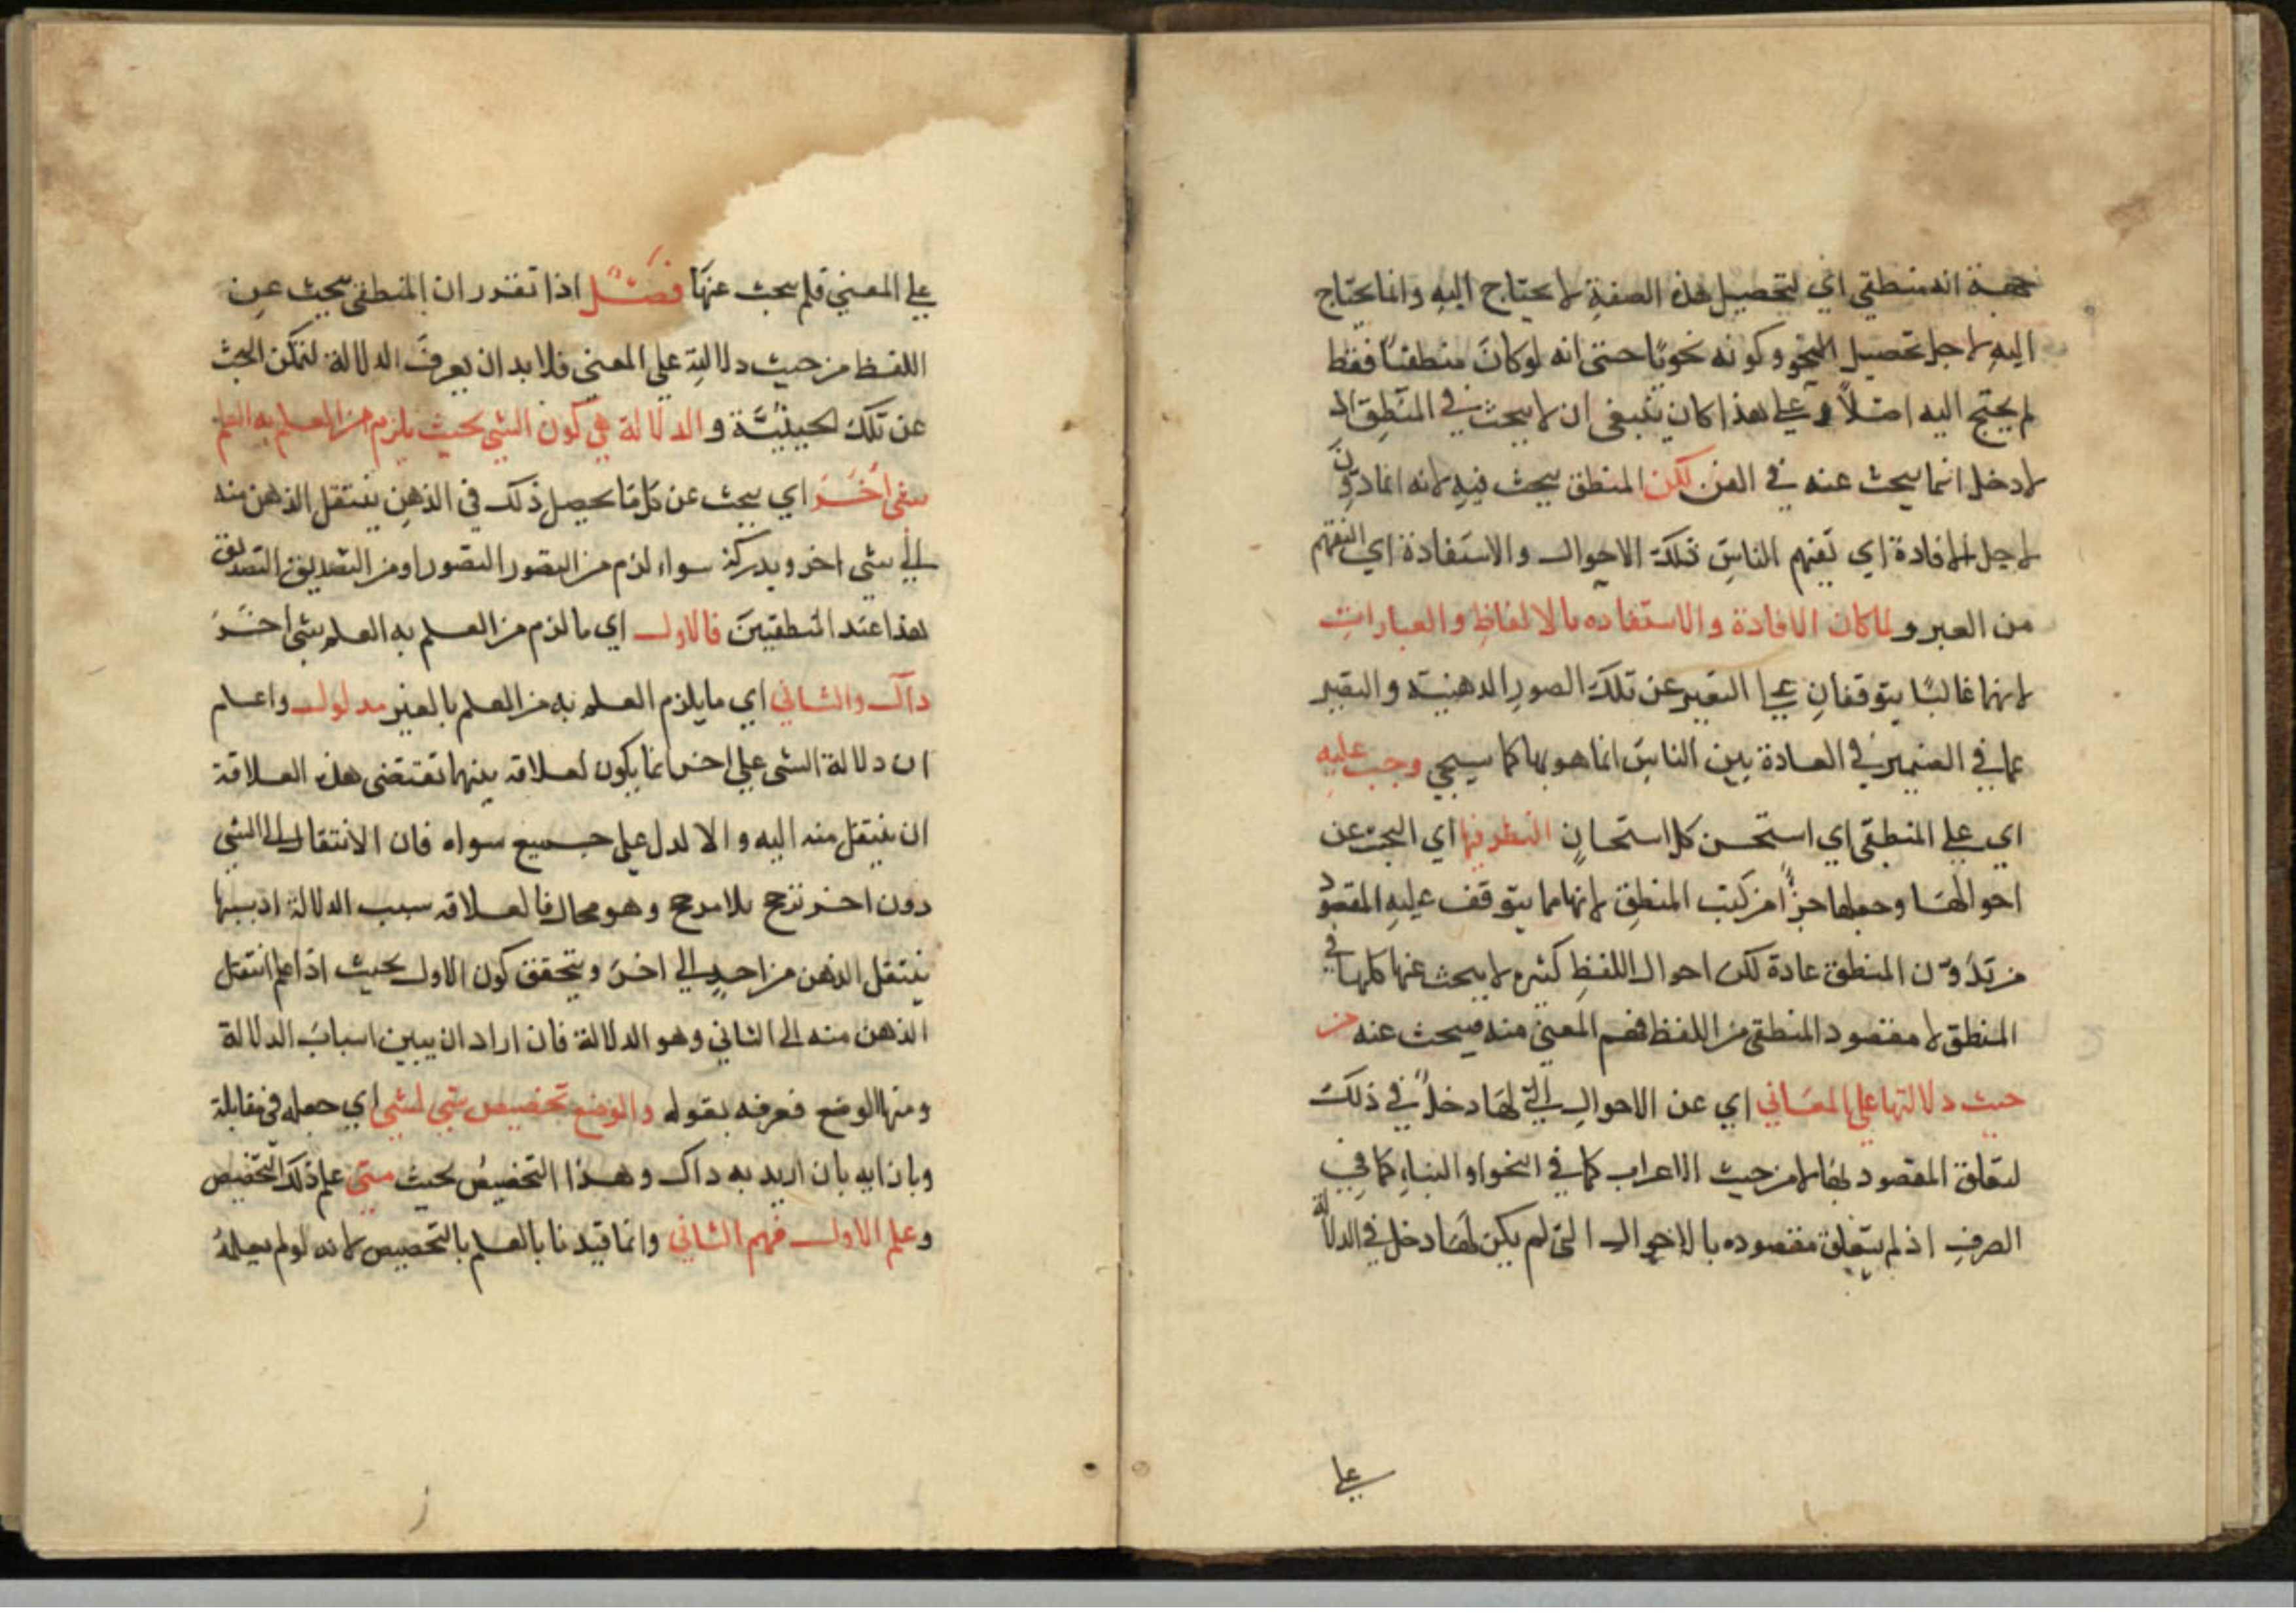 جهة انه منطقي اي لتحصيل هذه الصفة لا يحتاج اليه وانما يحتاج
اليه لاجل تحصيل النحو وكونه نحويًا حتى انه لو كان منطقيًا فقط
لم يحتج اليه اصلاً و على هذا كان ينبغي ان لا يبحث في المنطق اذ
لا دخل انما يبحث عنه في الفن لكن المنطق يبحث فيه لانه انما دوّن
لاجل الافادة اي تفهم الناس تلك الاحوال والاستفادة اي التفهم
من الغير و لما كان الافادة والاستفاده بالالفاظ والعبارات
لانهما غالبًا يتوقفان على التعبير عن تلك الصور الذهنية والتعبير
عما في الضمير في العادة بين الناس انما هو بها كما سيجي وجب عليه
اي على المنطقي اي استحسن كل استحسان النظر فيها اي البحث عن
احوالها وجعلها جزًا من كتب المنطق لانها مما يتوقف عليه المقصود
من تدوّن المنطق عادة لكن احوال اللفظ كثيره لا يبحث عنها كلها في
المنطق لا مقصود المنطقي من اللفظ فهم المعنى منه فيبحث عنه من
حيث دلالتها على المعاني اي عن الاحوال التي لها دخلاً في ذلك
لتعلق المقصود بها لا من حيث الاعراب كما في النحو او البناء كما في
الصرف اذ لم يتعلق مقصوده بالاحوال التى لم يكن لها دخل في الدلالة
على
على المعنى فلم يبحث عنها فصل اذا تقرر ان المنطقي يبحث عن
اللفظ من حيث دلالته على المعنى فلا بد ان يعرف الدلالة لتمكن البحث
عن تلك الحيثيّة و الدلالة هي كون الشي بحيث يلزم من العلم به العلم
بشى اخر اي يبحث عن كل ما يحصل ذلك في الذهن ينتقل الذهن منه
الى شي اخر ويدركه سواء لزم من التصور التصور او من التصديق التصديق
هذا عند المنطقيين فالاول اي ما لزم من العلم به العلم بشى اخر
دال والثاني اي ما يلزم العلم به من العلم بالغير مدلول واعلم
ان دلالة الشى على اخر انما يكون لعلاقه بينهما تقتضى هذه العلاقة
ان ينتقل منه اليه والا لدل على جميع سواه فان الانتقال الى الشي
دون اخر ترجح بلا مرجح وهو محال فالعلاقه سبب الدلالة اذ بسببها
ينتقل الذهن من احد الي اخر ويتحقق كون الاول بحيث اذا علم انتقل
الذهن منه الى الثاني وهو الدلالة فان اراد ان يبين اسباب الدلالة
ومنها الوضع فعرفه بقوله والوضع تخصيص شي لشي اي جعله في مقابلة
وبازايه بان اريد به داك وهذا التخصيص بحيث متى علم ذلك التخصيص
وعلم الاول فهم الثاني وانما قيدنا بالعلم بالتخصيص لانه لو لم يعلم